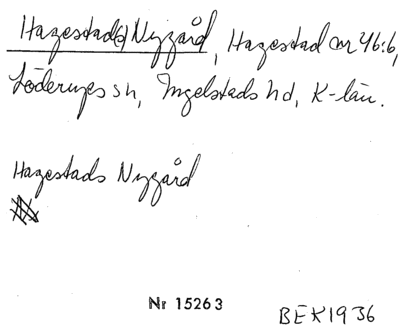 Hagestad(s) Nygård, Hagestad nr 46:6,
Löderups sn, Ingelstads hd, K-län.
Hagestads Nygård
Nr 15263
BEK 1936